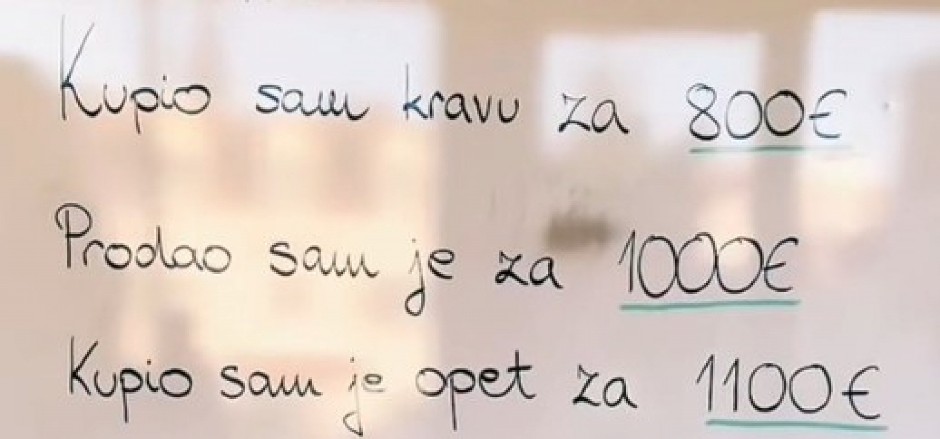 Kupio sam kravu za 800€
Prodao sam je za 1000€
Kupio sam je opet za 1100€